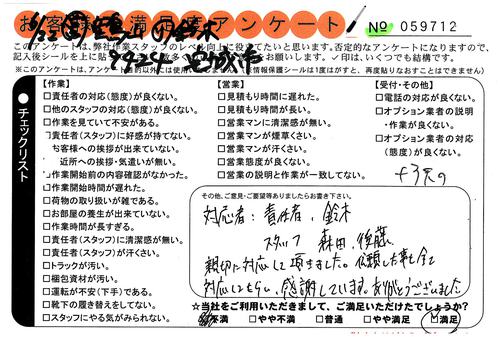 お客様満足度アンケート
No 059712
このアンケートは、弊社作業スタッフのレベル向上に役立てたいと思います。否定的なアンケートになりますので、
記入後シールを上に貼
お願いします。✓印は、いくつでも結構です。
【作業】
□責任者の対応(態度)が良くない。
□他のスタッフの対応(態度)が良くない。
□作業を見ていて不安がある。
責任者(スタッフ)に好感が持てない。
お客様への挨拶が出来ていない。
近所への挨拶・気遣いが無い。
作業開始前の内容確認がなかった。
□作業開始時間が遅れた。
□荷物の取り扱いが雑である。
□お部屋の養生が出来ていない。
□作業時間が長すぎる。
□責任者(スタッフ)に清潔感が無い。
□責任者(スタッフ)が汗くさい。
□トラックが汚い。
□梱包資材が汚い。
□運転が不安(下手)である。
□靴下の履き替えをしてない。
□スタッフにやる気がみられない。
【営業】
□見積もり時間に遅れた。
□見積もり時間が長い。
□営業マンに清潔感が無い。
□営業マンが煙草くさい。
□営業マンが汗くさい。
□営業態度が良くない。
□営業の説明と作業が一致してない。
【受付・その他】
□電話の対応が良くない。
□オプション業者の説明
・作業が良くない。
□オプション業者の対応
(態度)が良くない。
チェックリスト
その他、ご意見・ご要望等ありましたらお書き下さい。
対応者：責任者、鈴木
スタッフ 森田、後藤
親切に対応して頂きました。依頼した事も全て
対応してもらい、感謝しています。ありがとうございました
☆当社をご利用いただきまして、ご満足いただけたでしょうか?
不満 □やや不満 □普通 □やや満足 □満足